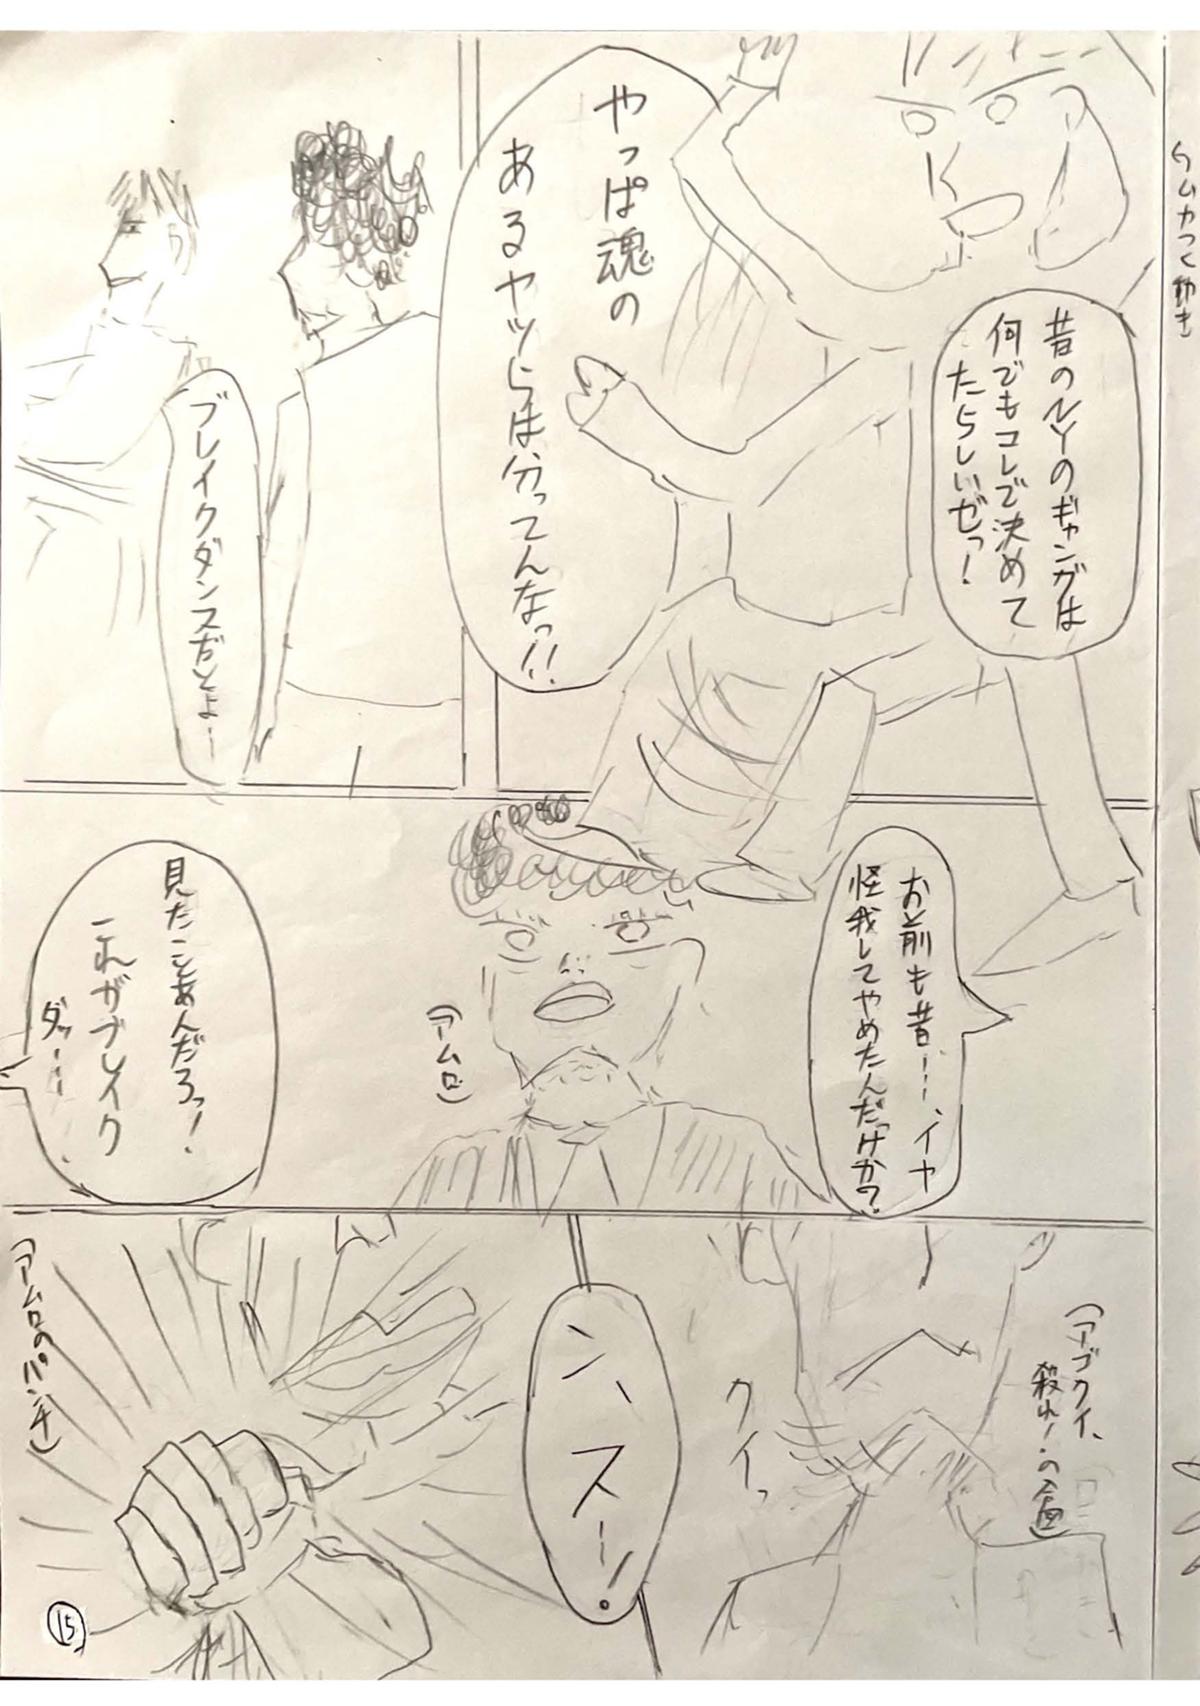 昔のNYのギャングは
何でもコレで決めて
たらしいぜっ!
やっぱ魂の
あるヤツらは分ってんなっ!!
ブレイクダンスだとよ…
お前も昔……、イヤ
怪我してやめたんだっけか?
(アムロ)
見たことあんだろっ!
これがブレイク
ダッ……
(アゴクイ、
殺れ!の合図)
クイっ
ン、スー!
(アムロのパンチ)
15
ケムカつく動き